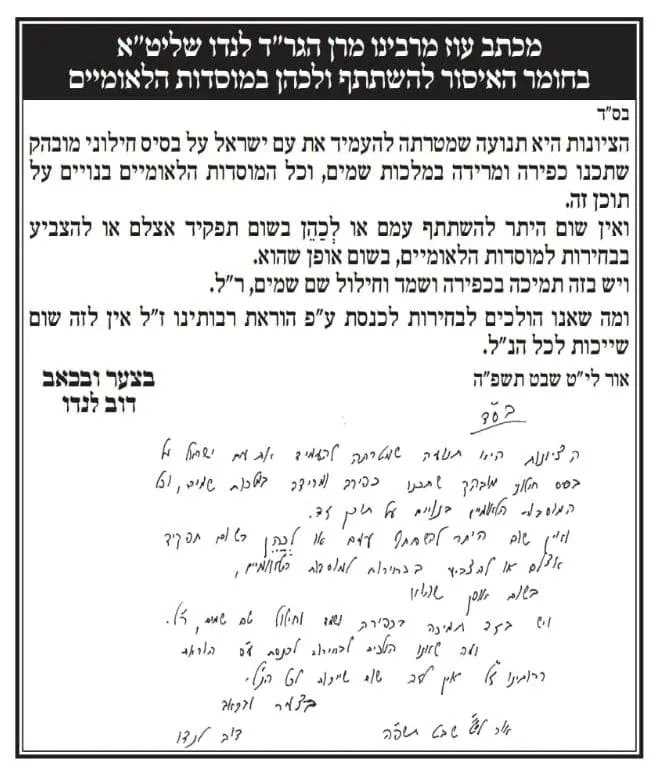 מכתב עוז מרבינו מרן הגר"ד לנדו שליט"א
בחומר האיסור להשתתף ולכהן במוסדות הלאומיים
בס"ד
הציונות היא תנועה שמטרתה להעמיד את עם ישראל על בסיס חילוני מובהק
שתכנו כפירה ומרידה במלכות שמים, וכל המוסדות הלאומיים בנויים על
תוכן זה.
ואין שום היתר להשתתף עמם או לְכַהֵן בשום תפקיד אצלם או להצביע
בבחירות למוסדות הלאומיים, בשום אופן שהוא.
ויש בזה תמיכה בכפירה ושמד וחילול שם שמים, ר"ל.
ומה שאנו הולכים לבחירות לכנסת ע"פ הוראת רבותינו ז"ל אין לזה שום
שייכות לכל הנ"ל.
אור לי"ט שבט תשפ"ה
בצער ובכאב
דוב לנדו
בס"ד
הציונות היא תנועה שמטרתה להעמיד את עם ישראל על
בסיס חילוני מובהק שתכנו כפירה ומרידה במלכות שמים, וכל
המוסדות הלאומיים בנויים על תוכן זה.
ואין שום היתר להשתתף עמם או לְכַהֵן בשום תפקיד
אצלם או להצביע בבחירות למוסדות הלאומיים,
בשום אופן שהוא
ויש בזה תמיכה בכפירה ושמד וחילול שם שמים, ר"ל.
ומה שאנו הולכים לבחירות לכנסת ע"פ הוראת
רבותינו ז"ל אין לזה שום שייכות לכל הנ"ל.
בצער ובכאב
אור לי"ט שבט תשפ"ה
דוב לנדו